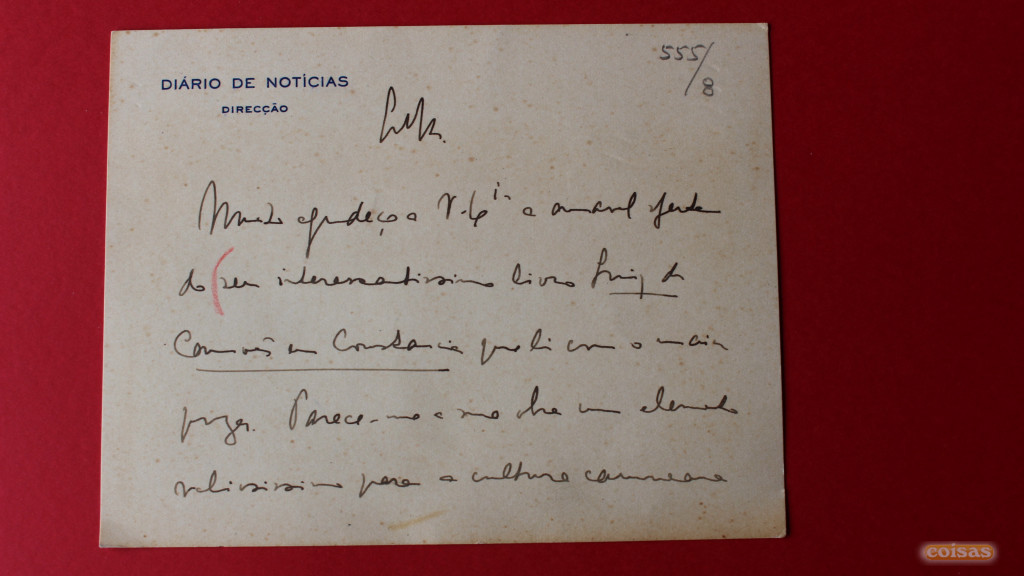 DIÁRIO DE NOTÍCIAS
DIRECÇÃO
555/8
Muito agradeço a V. Ex.ia a amavel oferta
do seu interessantissimo livro Luiz de
Camões em Constancia que li com o maior
prazer. Parece-me a sua obra um elemento
valiosissimo para a cultura camoneana
coisas